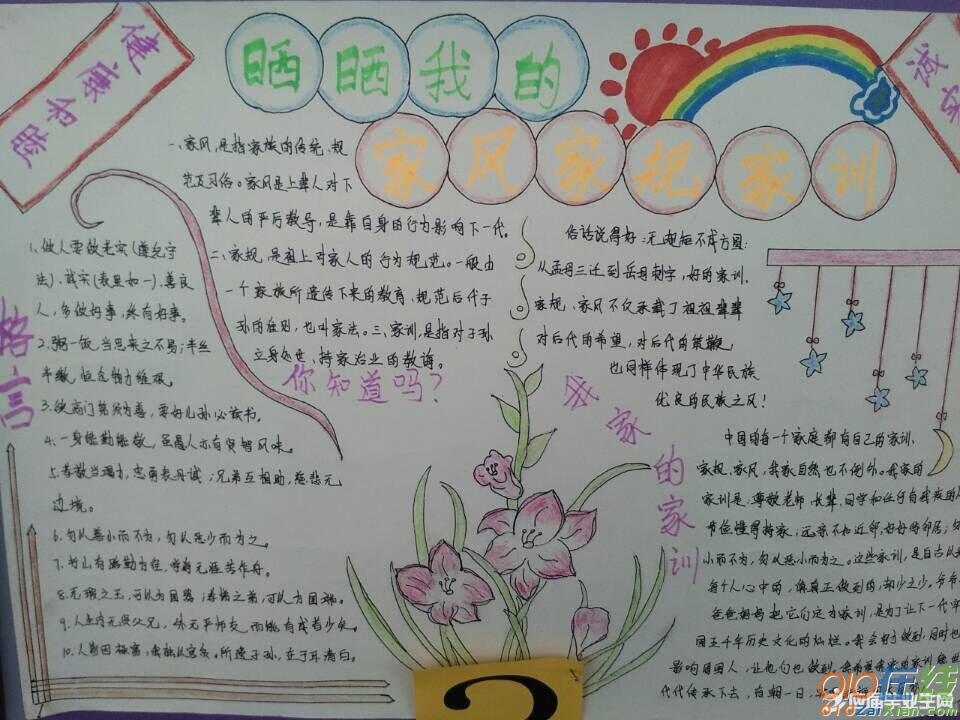 健康和睦
晒晒我的
家风家规家训
诚实
一、家风,是指家族的传统、规
范及习俗。家风是上辈人对下
辈人的严厉教导,是靠自身的行为影响下一代。
二、家规,是祖上对家人的行为规范。一般由
一个家族所遗传下来的教育、规范后代子
孙的准则,也叫家法。三、家训,是指对子孙
立身处世、持家治业的教诲。
你知道吗?
格言
1.做人要做老实(遵纪守
法)、诚实(表里如一)、善良
人,多做好事,终有好事。
2.粥一饭,当思来之不易;半丝
半缕,恒念物力维艰。
3.欲高门第须为善,要好儿孙必读书。
4.一身能勤能敬,虽愚人亦有贤智风味。
5.孝敬当竭力,忠勇表丹诚;兄弟互相助,慈悲无
边境。
6.勿以善小而不为,勿以恶少而为之。
7.书山有路勤为径,学海无涯苦作舟。
8.无瑕之玉,可以为国器;孝悌之弟,可以为国瑞。
9.人生内无贤父兄,外无严师友,而能有成者少矣。
10.
所遗子孙,在于耳清白。
俗话说得好:无规矩不成方圆!
从孟母三迁到岳母刺字,好的家训、
家规、家风不仅承载了祖祖辈辈
对后代的希望,对后代的鞭策,
也同样体现了中华民族
优良的民族之风!
我家的家训
中国的每一个家庭都有自己的家训、
家规、家风,我家自然也不例外。我家的
家训是:尊敬老师、长辈、同学和任何
节俭懂得持家;远亲不如近邻,好好待邻居;勿
小而不为,勿以恶小而为之。这些家训,是自古以来
每个人心中的,但真正做到的,却少之少。爷爷
爸爸妈妈把它们定为家训,是为了让下一代
国五千年历史文化的灿烂。我会努力做到,同时也
影响周围人,让他们也做到。
代代传承下去,
910在线
910ZaiXian.com
应届毕业生网